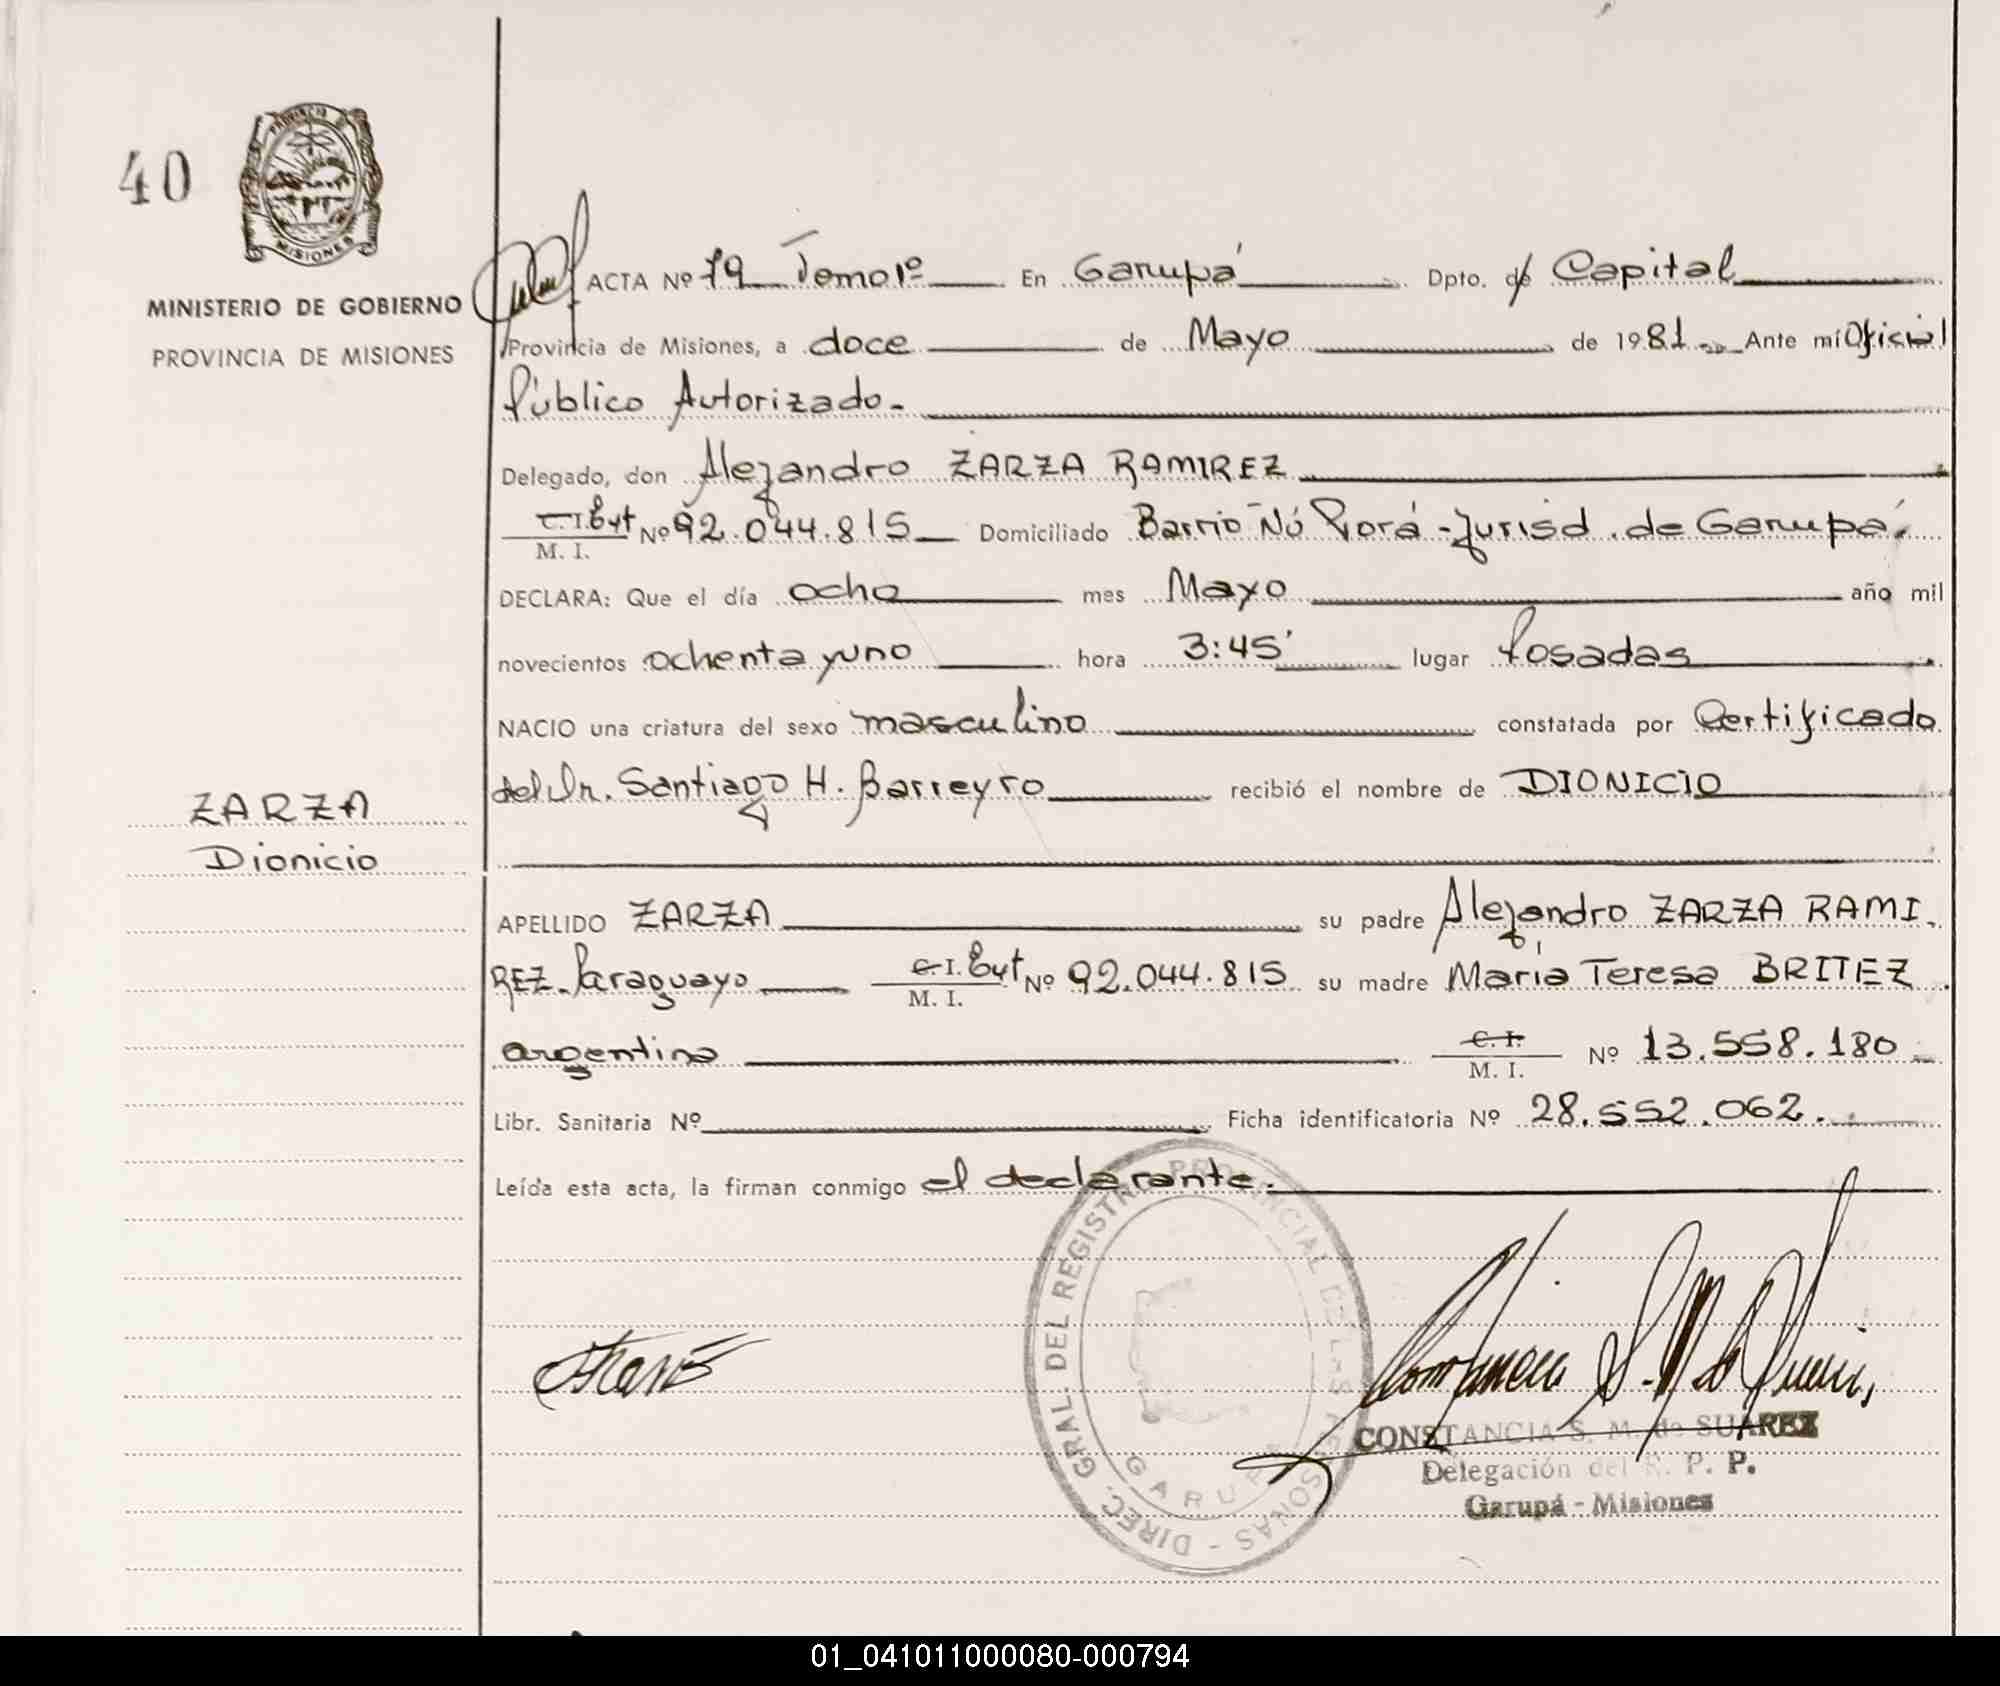 40
PROVINCIA DE
MISIONES
MINISTERIO DE GOBIERNO
PROVINCIA DE MISIONES
ACTA Nº 79 Tomo 1º En Garupá Dpto. de Capital
Provincia de Misiones, a doce de Mayo de 1981. Ante mí Oficial
Público Autorizado.
Delegado, don Alejandro ZARZA RAMIREZ
C.I. Ext M. I. Nº 92.044.815 Domiciliado Barrio Ñú Porá - Jurisd. de Garupá.
DECLARA: Que el día ocho mes Mayo año mil
novecientos ochenta y uno hora 3:45' lugar Posadas
NACIO una criatura del sexo masculino constatada por Certificado
del Dr. Santiago H. Barreyro recibió el nombre de DIONICIO
ZARZA
Dionicio
APELLIDO ZARZA su padre Alejandro ZARZA RAMI-
REZ-Paraguayo C.I. Ext M. I. Nº 92.044.815 su madre María Teresa BRITEZ
argentina C. I. M. I. Nº 13.558.180
Libr. Sanitaria Nº Ficha identificatoria Nº 28.552.062.
Leída esta acta, la firman conmigo el declarante.
DIREC. GRAL. DEL REGISTRO PROVINCIAL DE LAS PERSONAS -
GARUPA
CONSTANCIA S. M. de SUAREZ
Delegación del R. P. P.
Garupá - Misiones
01_041011000080-000794